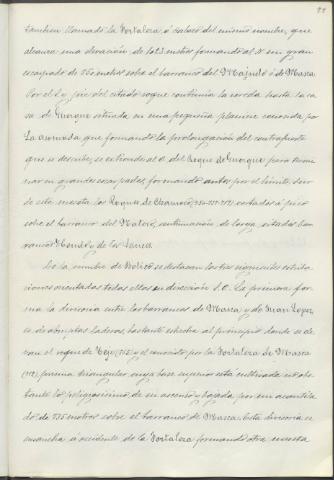 tambien llamado la Fortaleza ó Galeso del mismo nombre, que
alcanza una elevación de 1023 metros formando al N un gran
escarpado de 750 metros sobre el barranco del ó de Masca.
Por el E y pie del citado roque continúa la vereda hasta la ca
sa de Guergue situada en una pequeña planicie conocida por
La asomada que formando la prolongación del contrafuerte
que se describe, se extiende al O. del Roque de Guergue para termi
nar en grandes escarpados, formando antes por el límite Sur
de esta sección los Roques de cortados á pico
sobre el barranco del Natero, continuación de los ya citados bar
rancos Mondo y de los
De la cumbre de Bolico se destacan los tres siguientes estriba
ciones orientadas todas ellas en dirección S.O. La primera for
ma la divisoria entre los barrancos de Masca y de Juan Lopez,
es de abruptas laderas, bastante estrecha al principio donde se ele
van el roque de Tejo (715) y el conocido por la Fortaleza de Masca
(719), forma triangular cuya base superior esta cultivada no obs
tante lo peligrosisimo de su ascenso y bajada por un acantila
do de 735 metros sobre el barranco de Masca. Esta divisoria se
ensancha á occidente de la Fortaleza formando otra meseta